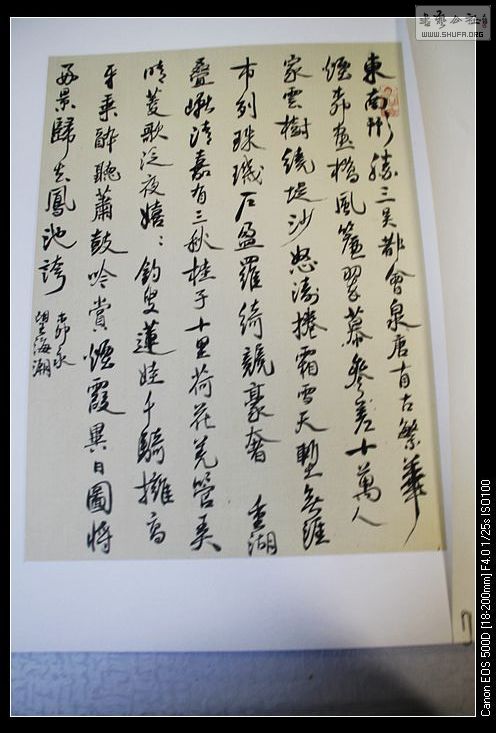 東南形勝三吳都會泉唐自古繁華
煙柳畫橋風簾翠幕參差十萬人
家雲樹繞堤沙怒濤捲霜雪天塹無涯
市列珠璣戶盈羅綺競豪奢 重湖
疊巘清嘉有三秋桂子十里荷花羌管弄
晴菱歌泛夜嬉:釣叟蓮娃千騎擁高
牙乘醉聽蕭鼓吟賞煙霞異日圖將
好景歸去鳳池誇
柳永
望海潮
書藝公社
WWW.SHUFA.ORG
Canon EOS 500D [18-200mm] F4.0 1/25s ISO100